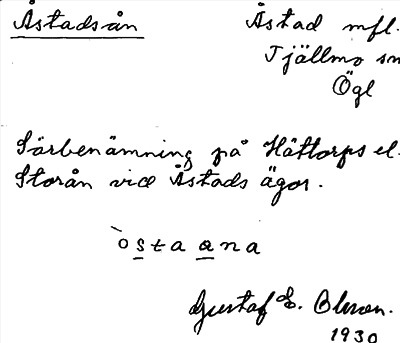 Åstadsån
Åstad mfl.
Tjällmo sn
Ögl
Särbenämning på Hättorps el.
Storån vid Åstads ägor.
òsta ana
Gustaf E. Olsson.
1930